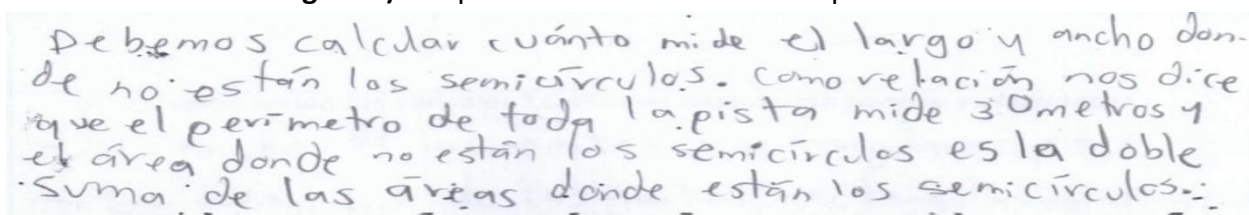 Debemos calcular cuánto mide el largo y ancho don-
de no están los semicírculos. Como relación nos dice
que el perímetro de toda la pista mide 30metros y
el área donde no están los semicírculos es la doble
suma de las áreas donde están los semicírculos.